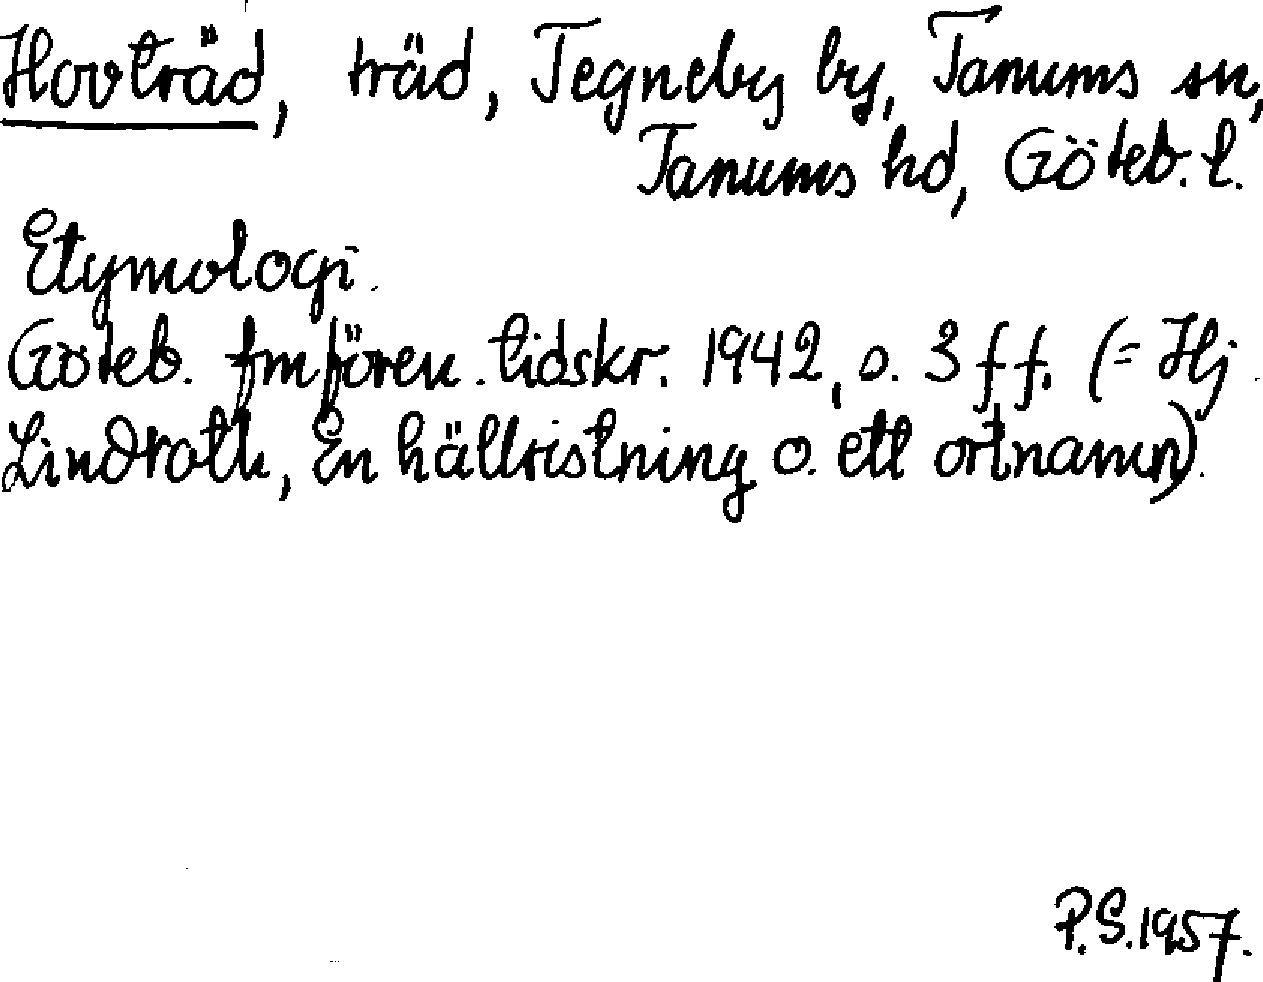 Hovträd, träd, Tegneby by, Tanums sn,
Tanums hd, Göteb. l.
Etymologi.
Göteb. fmfören. tidskr. 1942, s. 3 ff. (= Hj.
Lindroth, En hällristning o. ett ortnamn).
P.S. 1957.